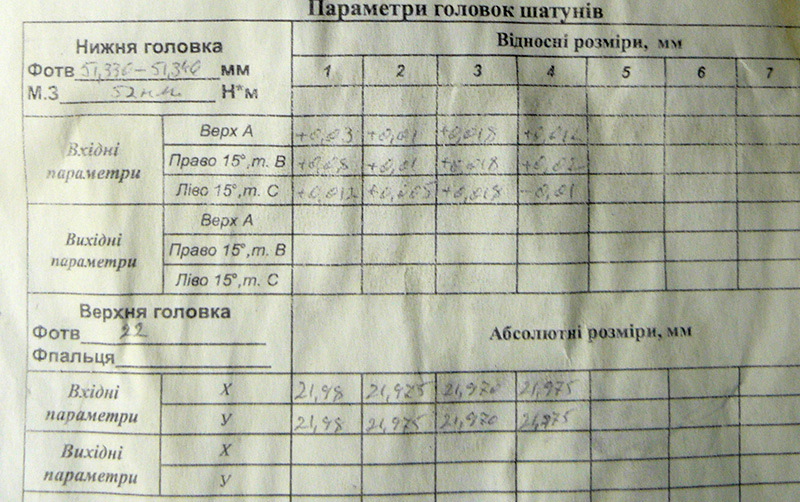 Параметри головок шатунів
Нижня головка
Відносні розміри, мм
Фотв 51,330-51,340 мм
1 2 3 4 5 6 7
М.З 52 н.м. Н*м
Вхідні параметри
Верх А +0,03 +0,01 +0,018 +0,012
Право 15°,т. В +0,08 +0,01 +0,018 +0,02
Ліво 15°,т. С +0,012 +0,005 +0,018 -0,01
Вихідні параметри
Верх А
Право 15°,т. В
Ліво 15°,т. С
Верхня головка
Фотв 22
Абсолютні розміри, мм
Фпальця
Вхідні параметри
Х 21,98 21,975 21,970 21,975
У 21,98 21,975 21,970 21,975
Вихідні параметри
Х
У